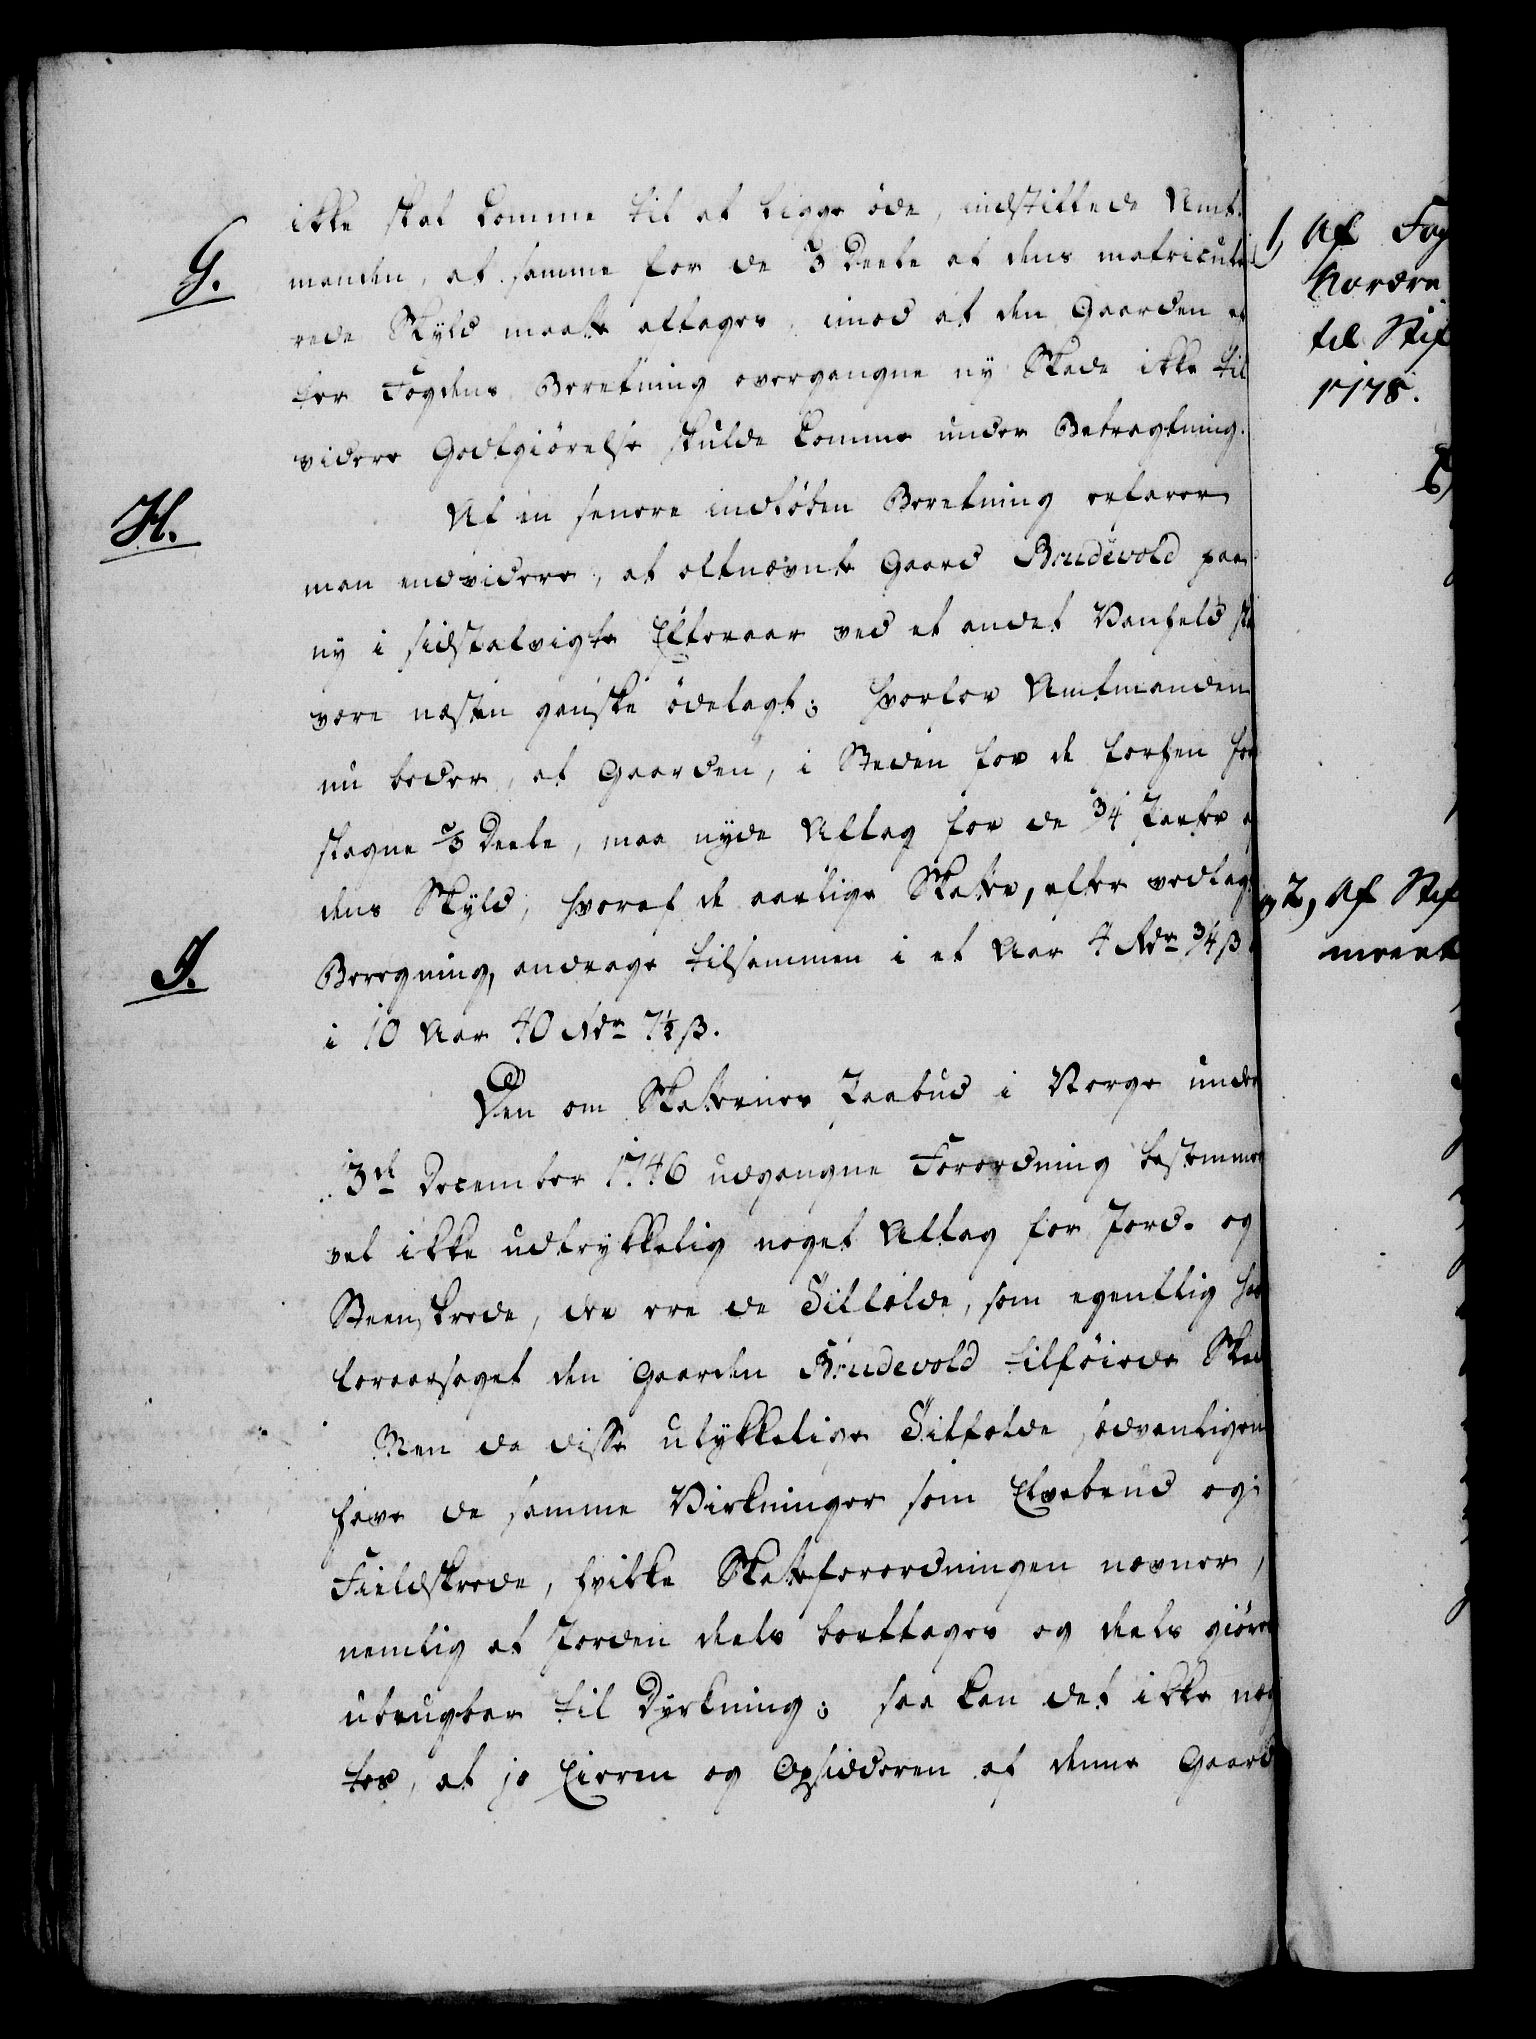 ikke skal komme til at ligge øde, indstillede Amt-
G.
manden, at samme for de 2/3 Deele af dens matricule-
rede Skyld maatte aftages, imod at den Gaarden ef
ter Fogdens Beretning overgangne ny Skade ikke til
videre Godtgiørelse skulde komme under Betragtning.
H.
Af en senere indløben Beretning erfarer
man endvidere, at oftnævnte Gaard Brudevold paa
ny i sidstafvigte Efteraar ved et andet Vandfeld ska
være næsten ganske ødelagt; hvorfor Amtmanden
nu beder, at Gaarden, i Steden for de forhen fore
slagne 2/3 Deele, maa nyde Aftag for de 3/4 Parter af
dens Skyld, hvoraf de aarlige Skatter, efter vedlag
I.
Beregning, andrage tilsammen i et Aar 4 Rdr 3/4 ß
i 10 Aar 40 Rdr 7½ ß.
Den om Skatternes Paabud i Norge under
3d December 1746 udgangne Forordning bestemmer
vel ikke udtrykkelig noget Aftag for Jord- og
Steenskrede, der ere de Tilfælde, som egentlig har
foraarsaget den Gaarden Brudevold tilføiede Skad
Men da disse ulykkelige Tilfælde sædvanligen
have de samme Virkninger som Elvebrud og
Fieldskrede, hvilke Skatteforordningen nævner,
nemlig at Jorden deels borttages og deels giøres
ubrugbar til Dyrkning; saa kan det ikke næg
tes, at jo Eieren og Opsidderen af denne Gaard
1, Af Fog
Nordre
til Stif
1778.
2, Af Stif